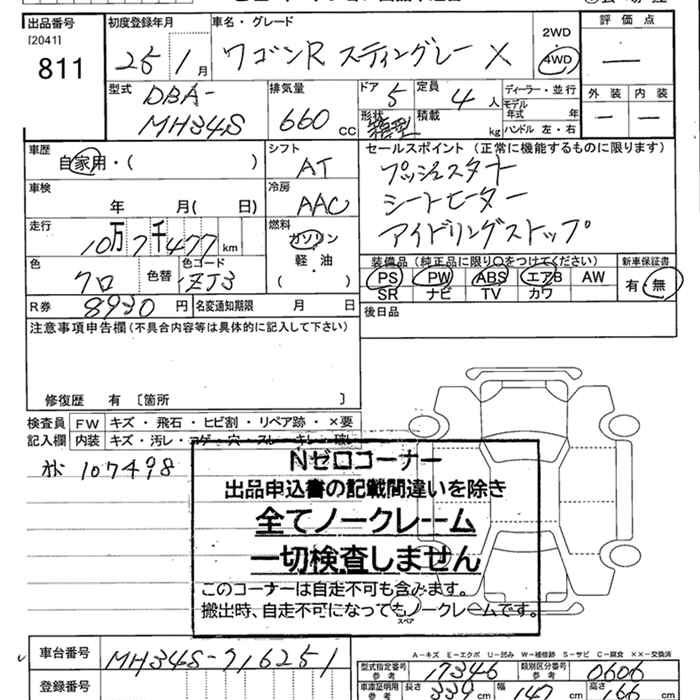 出品番号 初度登録年月 車名・グレード 評価点
[2041] 811 25 1月 ワゴンR スティングレー X 2WD 4WD —
型式 DBA-MH34S 排気量 660cc ドア 5 定員 4人 ディーラー・並行 外装 内装
形状 箱型 積載 kg モデル年式 年 ハンドル 左・右 — —
車歴 自家用・( ) シフト AT セールスポイント (正常に機能するものに限ります)
プッシュスタート
車検 年 月( 日) 冷房 AAC シートヒーター
走行 10万7千477km 燃料 ガソリン 軽・油 ( ) アイドリングストップ
色 クロ 色替 色コード ZJ3 装備品(純正品に限り○をつけてください) 新車保証書
PS PW ABS エアB AW 有・無
SR ナビ TV カワ
R券 8930円 名変通知期限 月 日 後日品
注意事項申告欄(不具合内容等は具体的に記入して下さい)
修復歴 有 [箇所 ]
検査員 FW キズ・飛石・ヒビ割・リペア跡・×要
記入欄 内装 キズ・汚レ・コゲ・穴・スレ・キレ・破レ
107498
Nゼロコーナー
出品申込書の記載間違いを除き
全てノークレーム
一切検査しません
このコーナーは自走不可も含みます。
搬出時、自走不可になってもノークレームです。
スペア
A-キズ E-エクボ U-凹み W-補修跡 S-サビ C-腐食 ××-交換済
車台番号 MH34S-716251 型式指定番号 参考 17346 類別区分番号 参考 0606
登録番号 車庫証明用 参考 長さ 339cm 幅 147cm 高さ 166cm